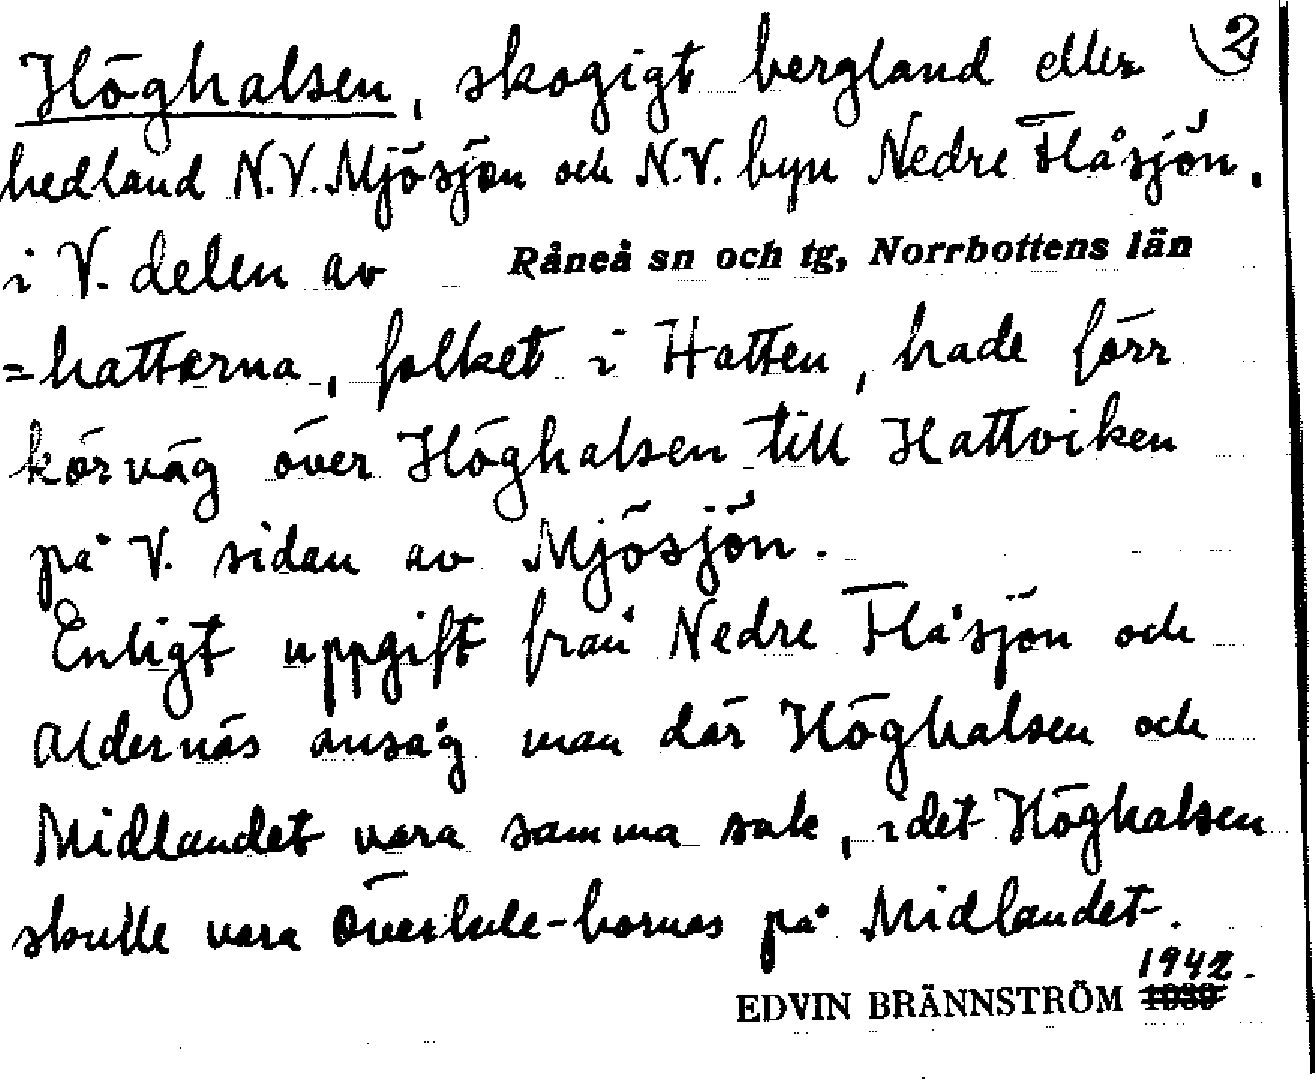 Höghalsen, skogigt bergland eller 2
hedland N.V. Mjösjön och N.V. byn Nedre Flåsjön,
i V. delen av Råneå sn och tg, Norrbottens län
=hattarna, folket i Hatten, hade förr
körväg över Höghalsen till Hattviken
på V. sidan av Mjösjön.
Enligt uppgift från Nedre Flåsjön och
Aldernäs ansåg man där Höghalsen och
Midlandet vara samma sak, idet Höghalsen
skulle vara Överlule-bornas på Midlandet.
1942.
EDVIN BRÄNNSTRÖM 1939